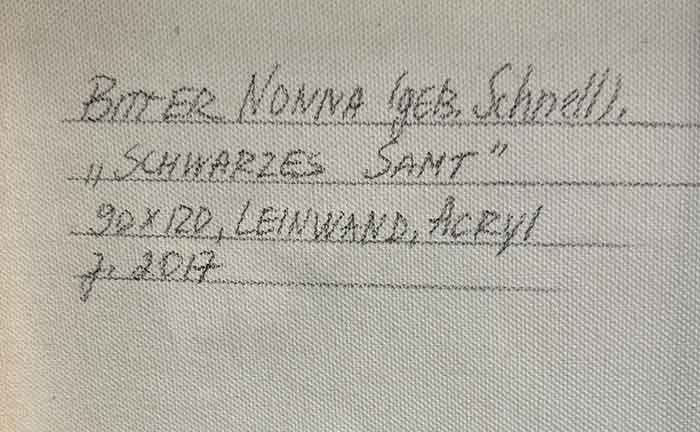 BITTER NONNA (geb. Schnell).
„SCHWARZES SAMT"
90x120, LEINWAND, ACRYL
J. 2017